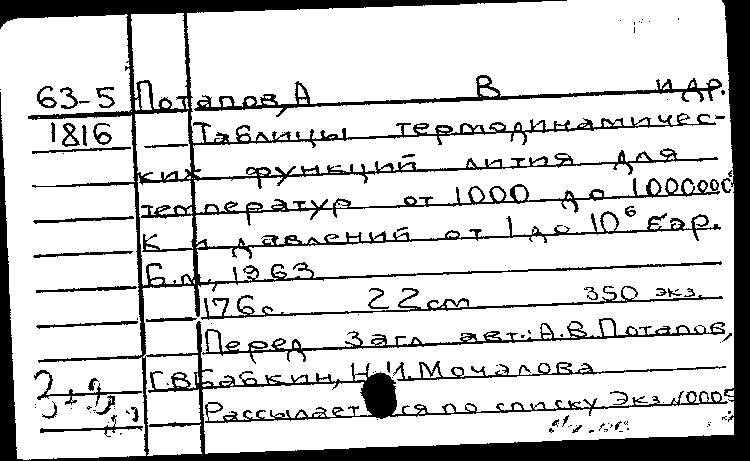 63-5 Потапов, А В и др.
1816 Таблицы термодинамичес-
ких функций лития для
температур от 1000 до 1000000
К и давлений от 1 до 10⁶ бар.
Б.м., 1963
176с. 22см 350 экз.
Перед загл авт.: А.В.Потапов,
Г.В Бабкин, Н.И.Мочалова
Рассылается по списку Экз.N0005